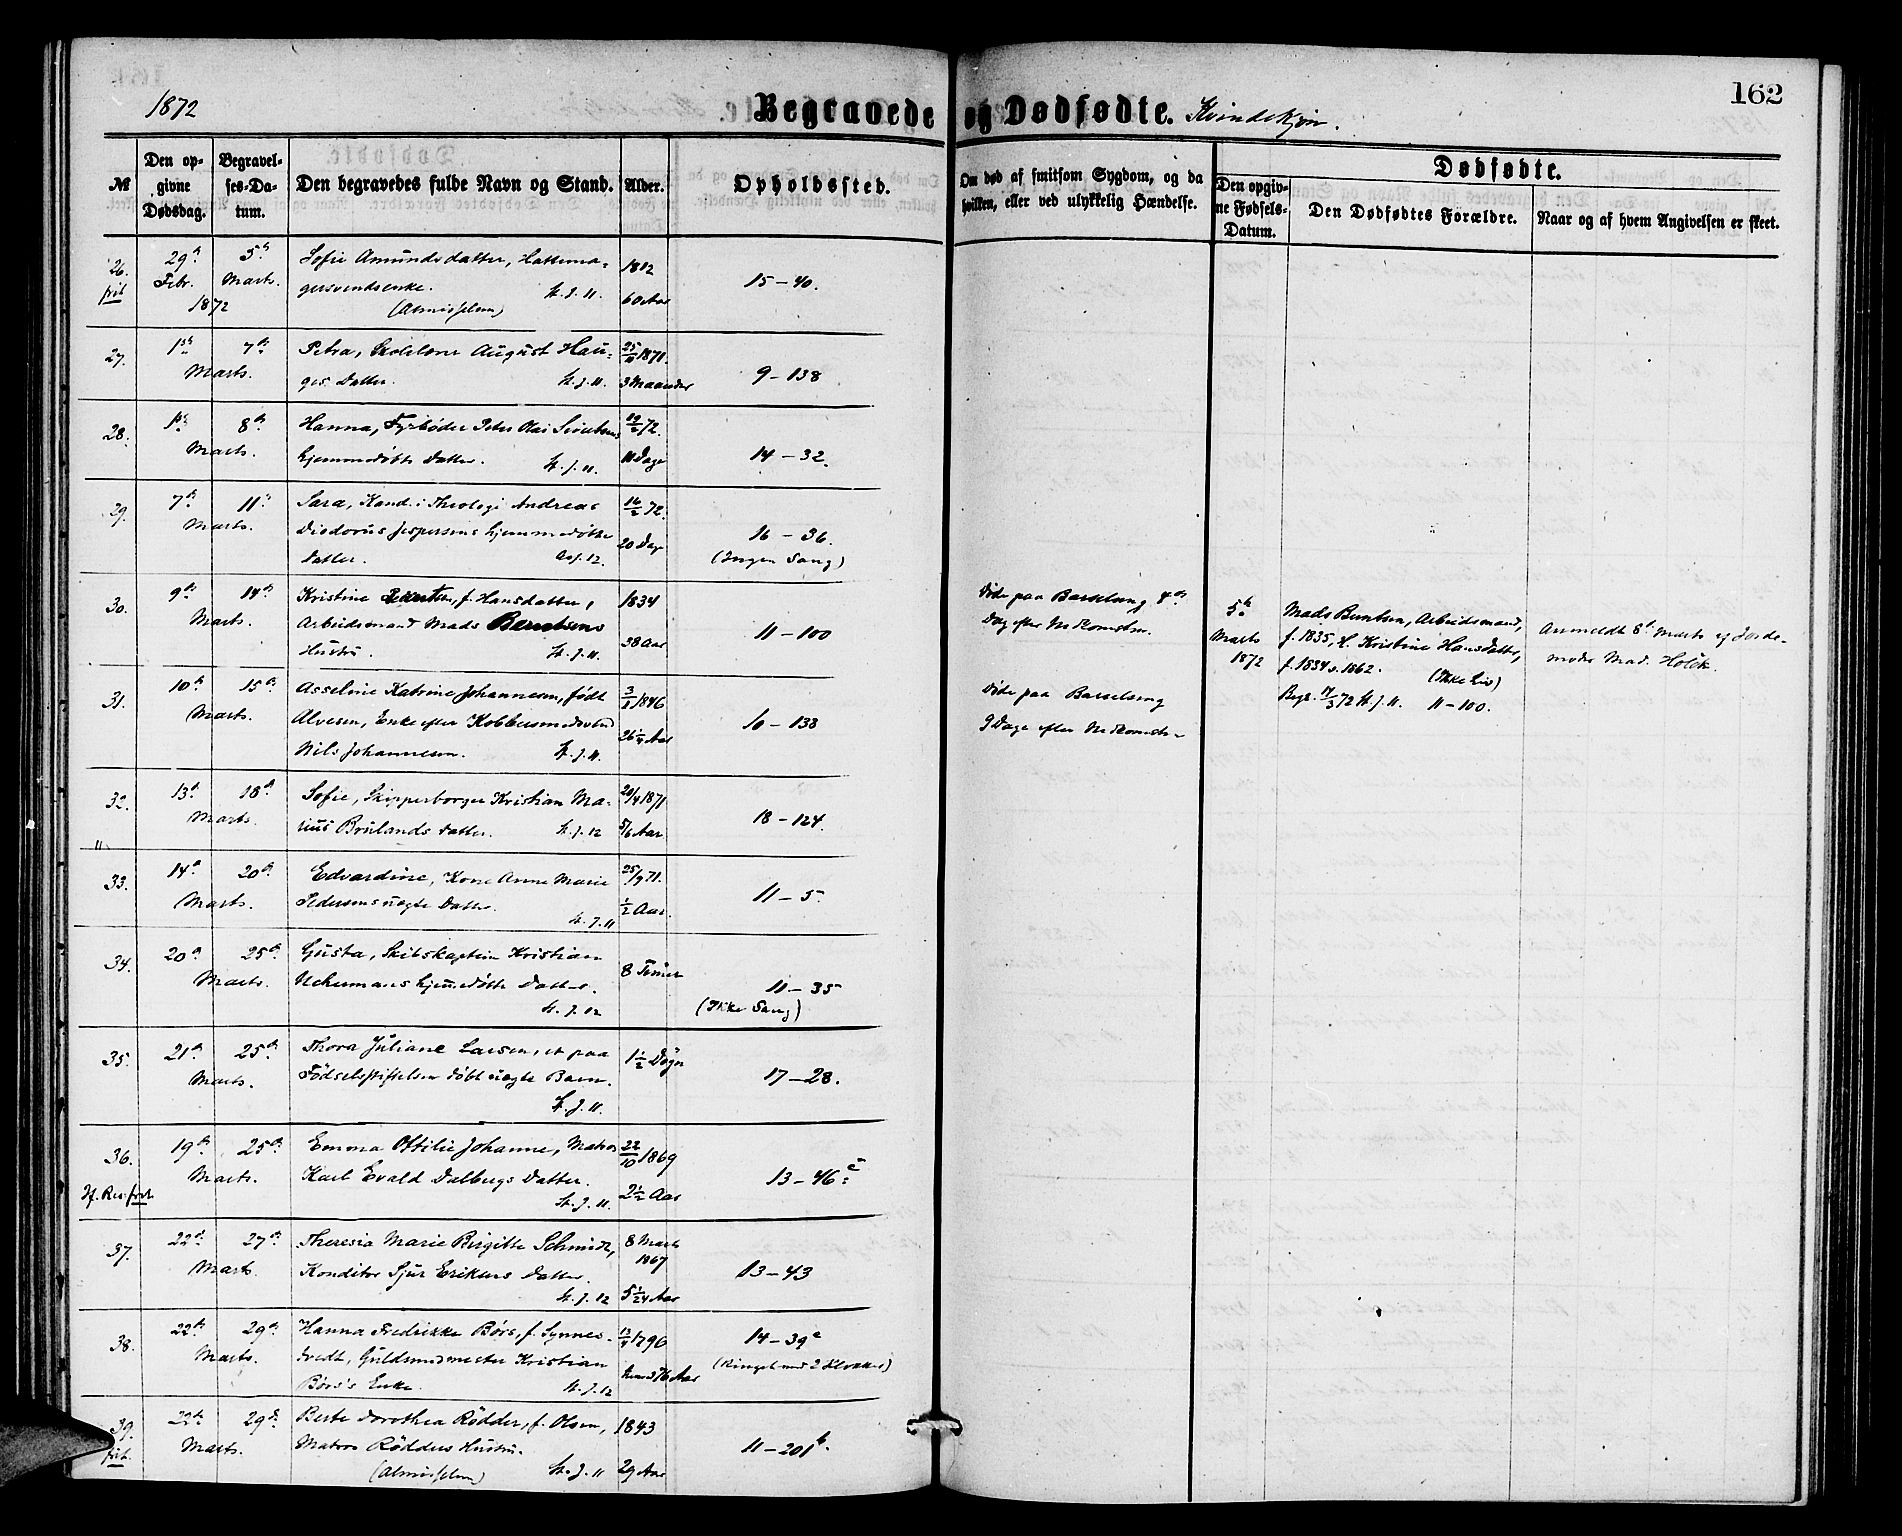 1872
Begravede og Dødfødte. Kvindekjøn.
162
№
Den opgivne Dødsdag.
Begravelses-Datum.
Den begravedes fulde Navn og Stand.
Alder.
Opholdssted.
Om død af smitsom Sygdom, og da hvilken, eller ved ulykkelig Hændelse.
Dødfødte.
Den opgivne Fødsels-Datum.
Den Dødfødtes Forældre.
Naar og af hvem Angivelsen er skeet.
26. 29de 5te Sofie Amundsdatter, Hattema- 1812 15-40.
frit Febr. Marts. gersvendsenke. St. J. 11. 60 Aar
1872 (Almisselem)
27. 1ste 7de Petra, August Hau- 1871. 9-138
Marts. ges Datter. St. J. 11. 3 Maaneder
28. 1ste 8de Hanna, Fyrbøder Peter Olai 19/2 72. 14-32.
Marts. hjemmedøbte Datter. St. J. 11. 11 Dage
29. 7de 11te Sara, Kand. i Theologi Andreas 16/2 72. 16-36.
Marts. Diodorus Jespersens hjemmedøbte 20 Dage (Ingen Sang)
Datter. 12.
30. 9de 14de Kristine f. Hansdatter, 1834 11-100
Marts. Arbeidsmand Mads Berntsens 38 Aar
Hustru. St. J. 11.
Døde paa Barselseng 4de
Dag efter Nedkomsten.
5te Marts 1872
Mads Berntsen, Arbeidsmand,
f. 1835, H. Kristine Hansdatter,
f. 1834 v. 1862. (Ikke Liv)
Begr. 72 St. J. 11. 11-100.
Anmeldt 8de Marts af Jorde-
moder Mad. Holck.
31. 10de 15de Asseline Katrine Johannesen, født 1846 10-138
Marts. Alvesen, Enke efter Kobbersmedsvend 26 1/4 Aar
Nils Johannesen. St. J. 11.
Døde paa Barselseng
9 Dage efter Nedkomsten
32. 13de 18de Sofie, Skipperborger Kristian Ma- 20/4 1871 18-124.
Marts. rius Brulands Datter. St. J. 12 5/6 Aar
33. 14de 20de Edvardine, Kone Anne Marie 25/9 71. 11-5
Marts. Pedersens uægte Datter. St. J. 11 1/2 Aar.
34. 20de 25de Gusta, Skibskaptein Kristian 8 Timer 11-35
Marts. Uchermans hjemmedøbte Datter. (Ikke Sang)
St. J. 12
35. 21de 25de Thora Juliane Larsen, et paa 1 1/2 Døgn 17-28.
Marts. Fødselsstiftelsen døbt uægte Barn.
St. J. 11.
36. 19de 25de Emma Ottilie Johanne, Matros 22/10 1869 13-46c
frit Marts. Karl Evald Dalbergs Datter. 2 1/2 Aar
St. J. 11.
37. 22de 27de Theresia Marie Birgitte Schmidt, 8 Marts 1867 13-43
Marts. Konditor Sjur Eriksens Datter. 5 1/24 Aar
St. J. 12
38. 22de 29de Hanna Fredrikke Børs, f. Synnes- 1796 14-39c
Marts. tvedt, Guldsmedmester Kristian 76 Aar (Ringet med 2 Klokker)
Børs's Enke. St. J. 12
39. 22de 29de Berte Dorothea Rødder, f. Olsen, 1843 11-201b.
frit. Marts. Matros Rødders Hustru. 29 Aar
(Almisselem) St. J. 11